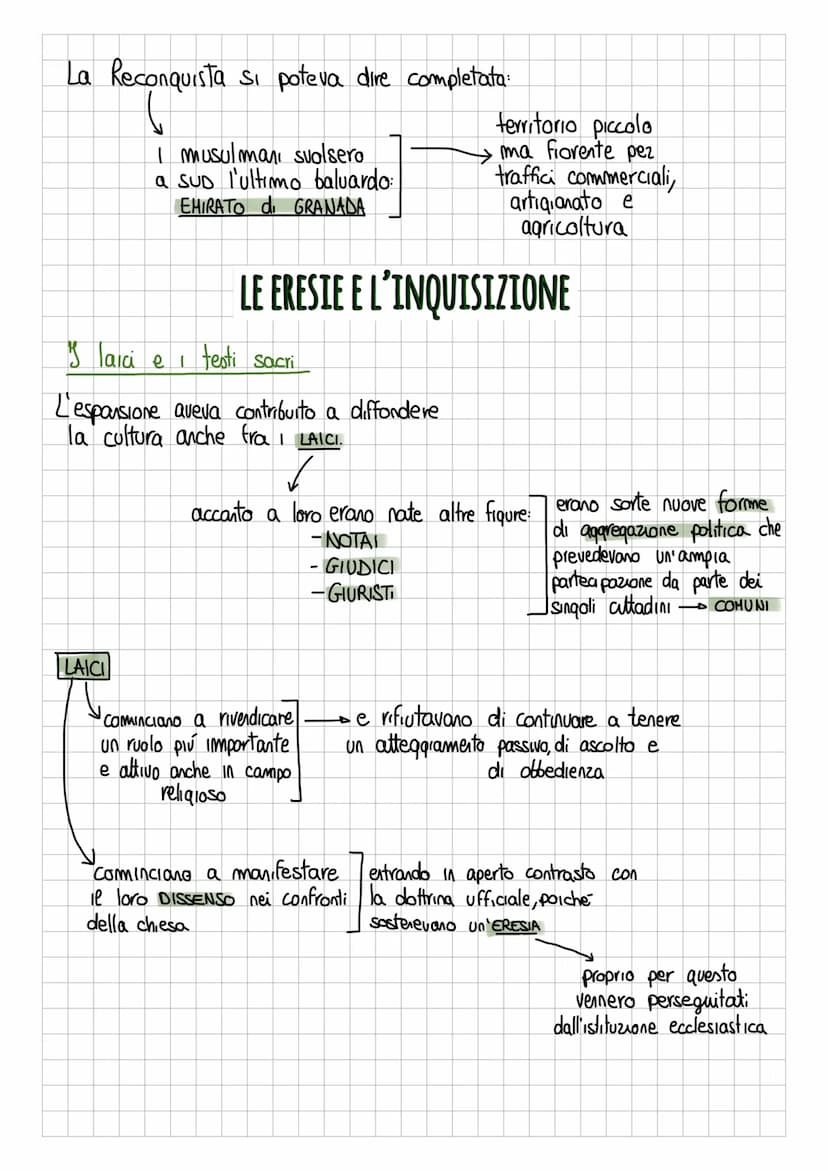 La Reconquista si poteva dire completata:
i musulmani svolsero
a SUD l'ultimo baluardo:
EMIRATO di GRANADA
territorio piccolo
ma fiorente per
traffici commmerciali,
artigianato e
agricoltura
LE ERESIE E L'INQUISIZIONE
I laici e i testi sacri
L'espansione aveva contribuito a diffondere
la cultura anche fra i LAICI.
accanto a loro erano nate altre figure:
- NOTAI
- GIUDICI
- GIURISTI
erano sorte nuove forme
di aggregazione politica che
prevedevano un'ampia
partecipazione da parte dei
singoli cittadini → COMUNI
LAICI
cominciano a rivendicare
un ruolo piú importante
e attivo anche in campo
religioso
→ e rifiutavano di continuare a tenere
un atteggiamento passivo, di ascolto e
di obbedienza
cominciano a manifestare
il loro DISSENSO nei confronti
della chiesa
entrando in aperto contrasto con
la dottrina ufficiale, poiché
sostenevano un'ERESIA
proprio per questo
vennero perseguitati
dall'istituzione ecclesiastica